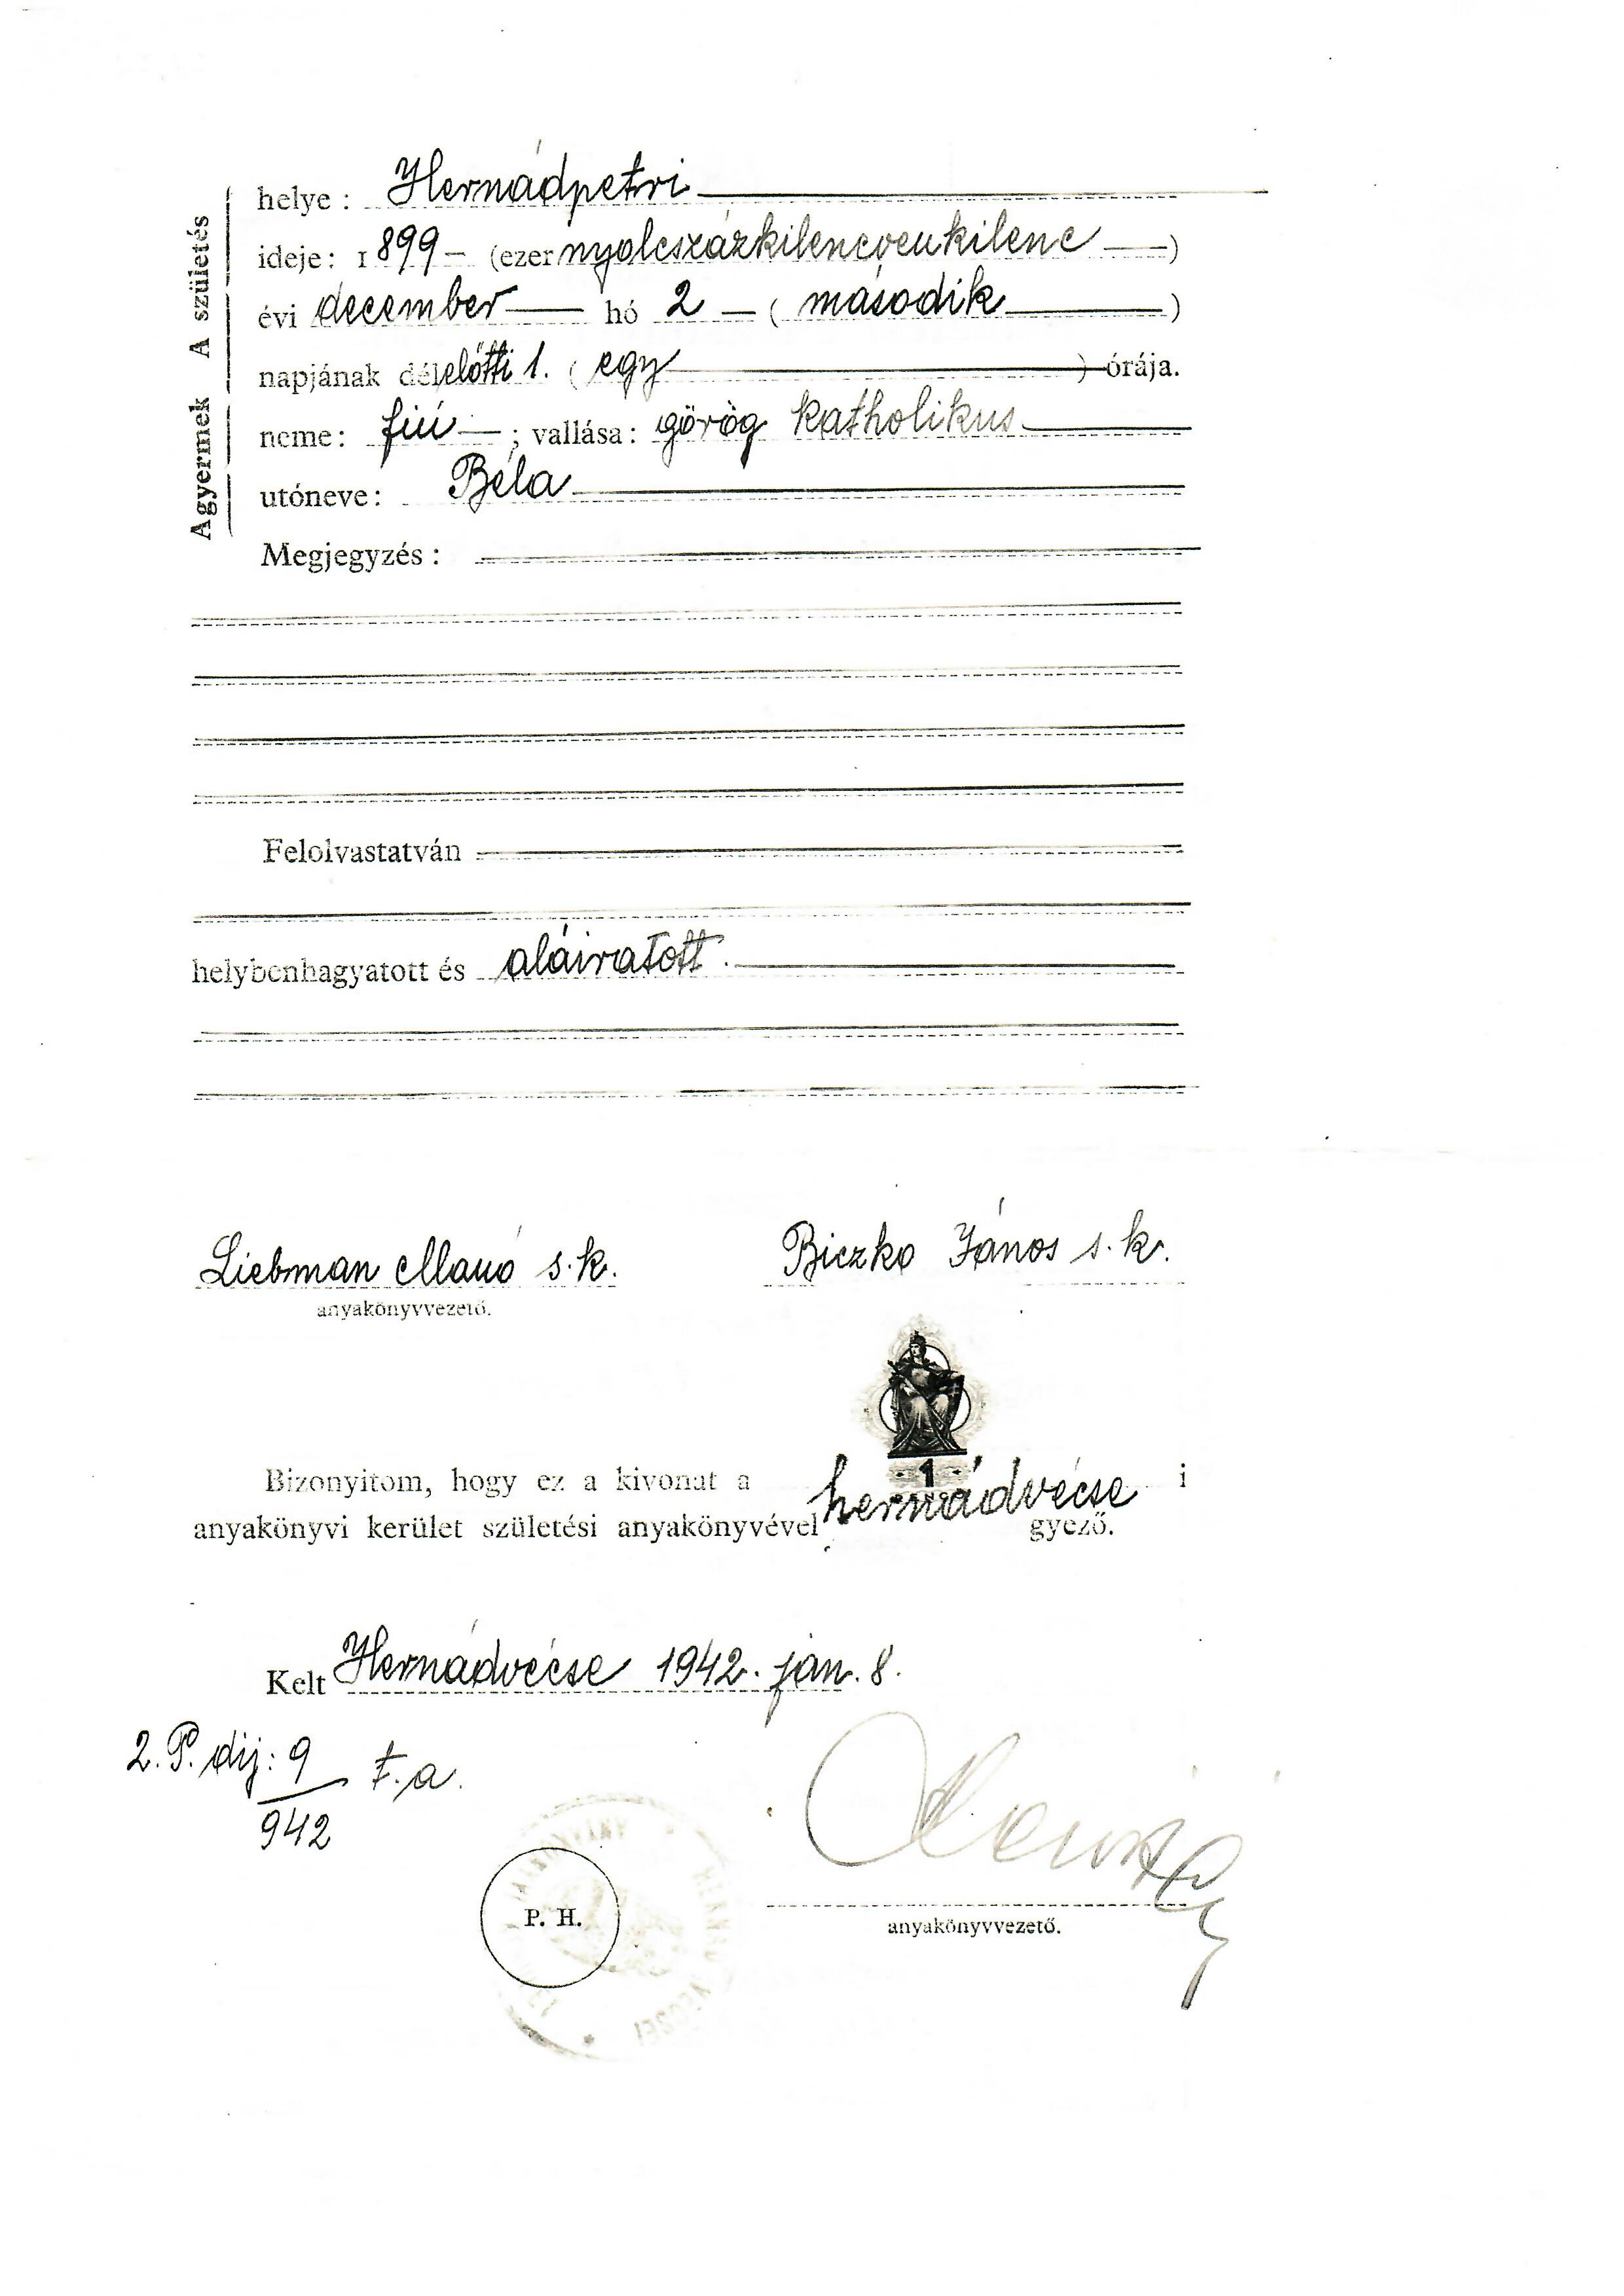 A születés
helye : Hernádpetri
ideje: 1899 – (ezernyolcszázkilencvenkilenc —)
évi december — hó 2 — ( második )
napjának délelőtti 1. ( egy ) órája.
A gyermek
neme: fiú — ; vallása: görög katholikus
utóneve: Béla
Megjegyzés :
Felolvastatván
helybenhagyatott és aláiratott.
Liebman Manó s.k. Biczko János s.k.
anyakönyvvezető.
1
Bizonyitom, hogy ez a kivonat a hernádvécse i
anyakönyvi kerület születési anyakönyvével gyező.
Kelt Hernádvécse 1942. jan. 8.
2. P. dij: 9 t.a.
942
P. H.
anyakönyvvezető.